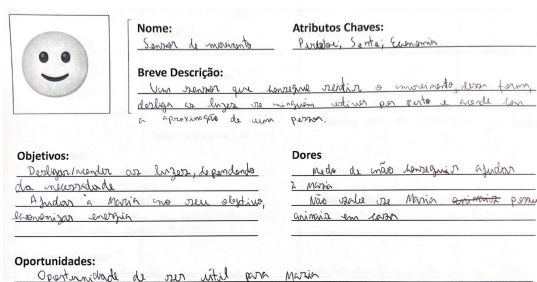 Nome:
Sensor de movimento
Atributos Chaves:
Perceber, Sente, Economia
Breve Descrição:
Um sensor que consegue sentir o movimento, dessa forma,
desliga as luzes se ninguém estiver por perto e acende com
a aproximação de uma pessoa.
Objetivos:
Desligar/acender as luzes, dependendo
da necessidade
Ajudar a Maria no seu objetivo,
economizar energia
Dores
Medo de não conseguir ajudar
a Maria
Não sabe se Maria possu
animais em casa
Oportunidades:
Oportunidade de ser útil para Maria